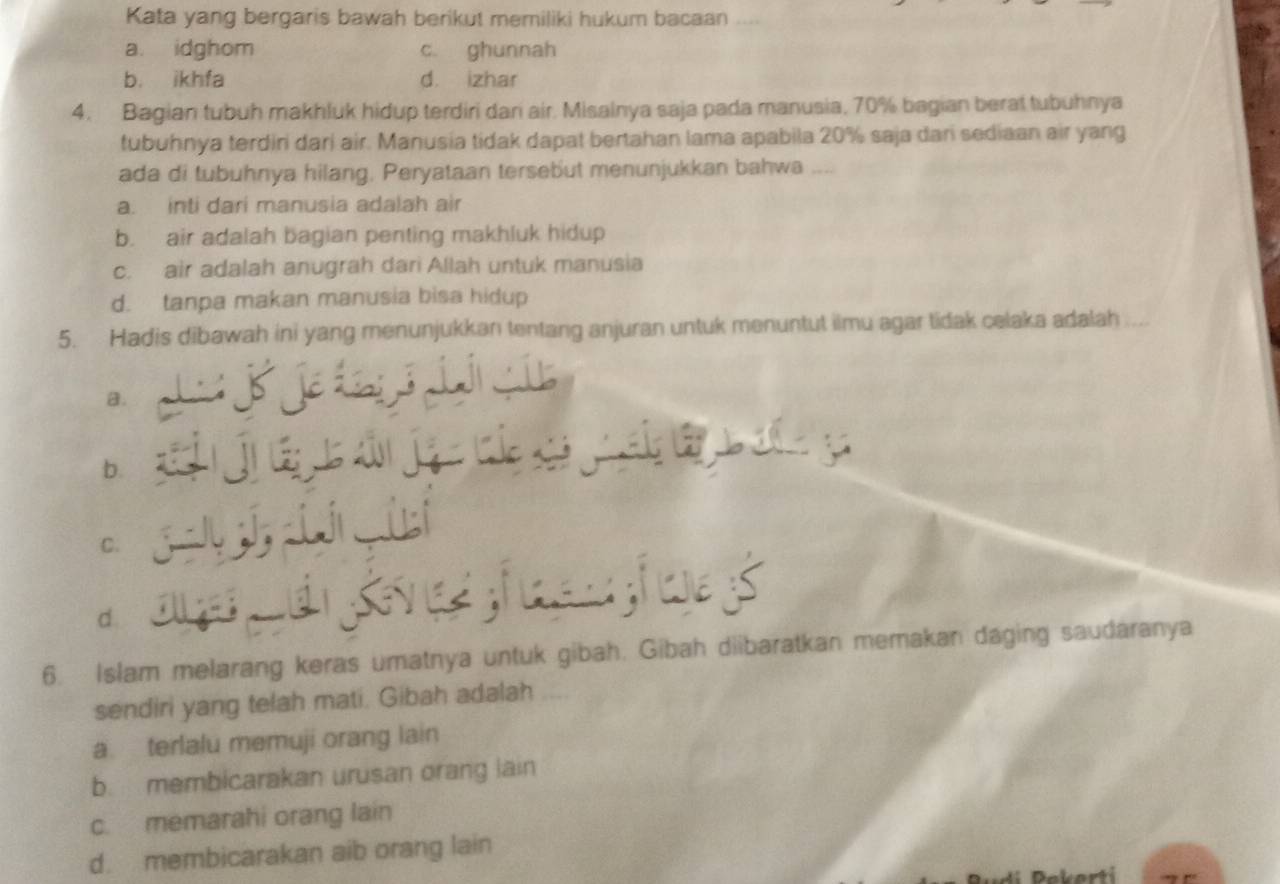 Kata yang bergaris bawah berikut memiliki hukum bacaan ....
a. idghom c. ghunnah
b. ikhfa d. izhar
4. Bagian tubuh makhluk hidup terdiri dari air. Misalnya saja pada manusia, 70% bagian berat tubuhnya
tubuhnya terdiri dari air. Manusia tidak dapat bertahan lama apabila 20% saja dari sediaan air yang
ada di tubuhnya hilang. Peryataan tersebut menunjukkan bahwa ....
a. inti dari manusia adalah air
b. air adalah bagian penting makhluk hidup
c. air adalah anugrah dari Allah untuk manusia
d. tanpa makan manusia bisa hidup
5. Hadis dibawah ini yang menunjukkan tentang anjuran untuk menuntut ilmu agar tidak celaka adalah ....
a. طَلَبُ الْعِلْمِ فَرِيْضَةٌ عَلَى كُلِّ مُسْلِمٍ
b. مَنْ سَلَكَ طَرِيْقًا يَلْتَمِسُ فِيْهِ عِلْمًا سَهَّلَ اللهُ طَرِيْقًا اِلَى الْجَنَّةِ
c. أُطْلُبِ الْعِلْمَ وَلَوْ بِالصِّيْنِ
d. كُنْ عَالِمًا أَوْ مُسْتَمِعًا أَوْ مُحِبًّا لَاتَكُنْ الْخَامِسَ فَتَهْلِكَ
6. Islam melarang keras umatnya untuk gibah. Gibah diibaratkan memakan daging saudaranya
sendiri yang telah mati. Gibah adalah ....
a. terlalu memuji orang lain
b. membicarakan urusan orang lain
c. memarahi orang lain
d. membicarakan aib orang lain
Budi Pekerti